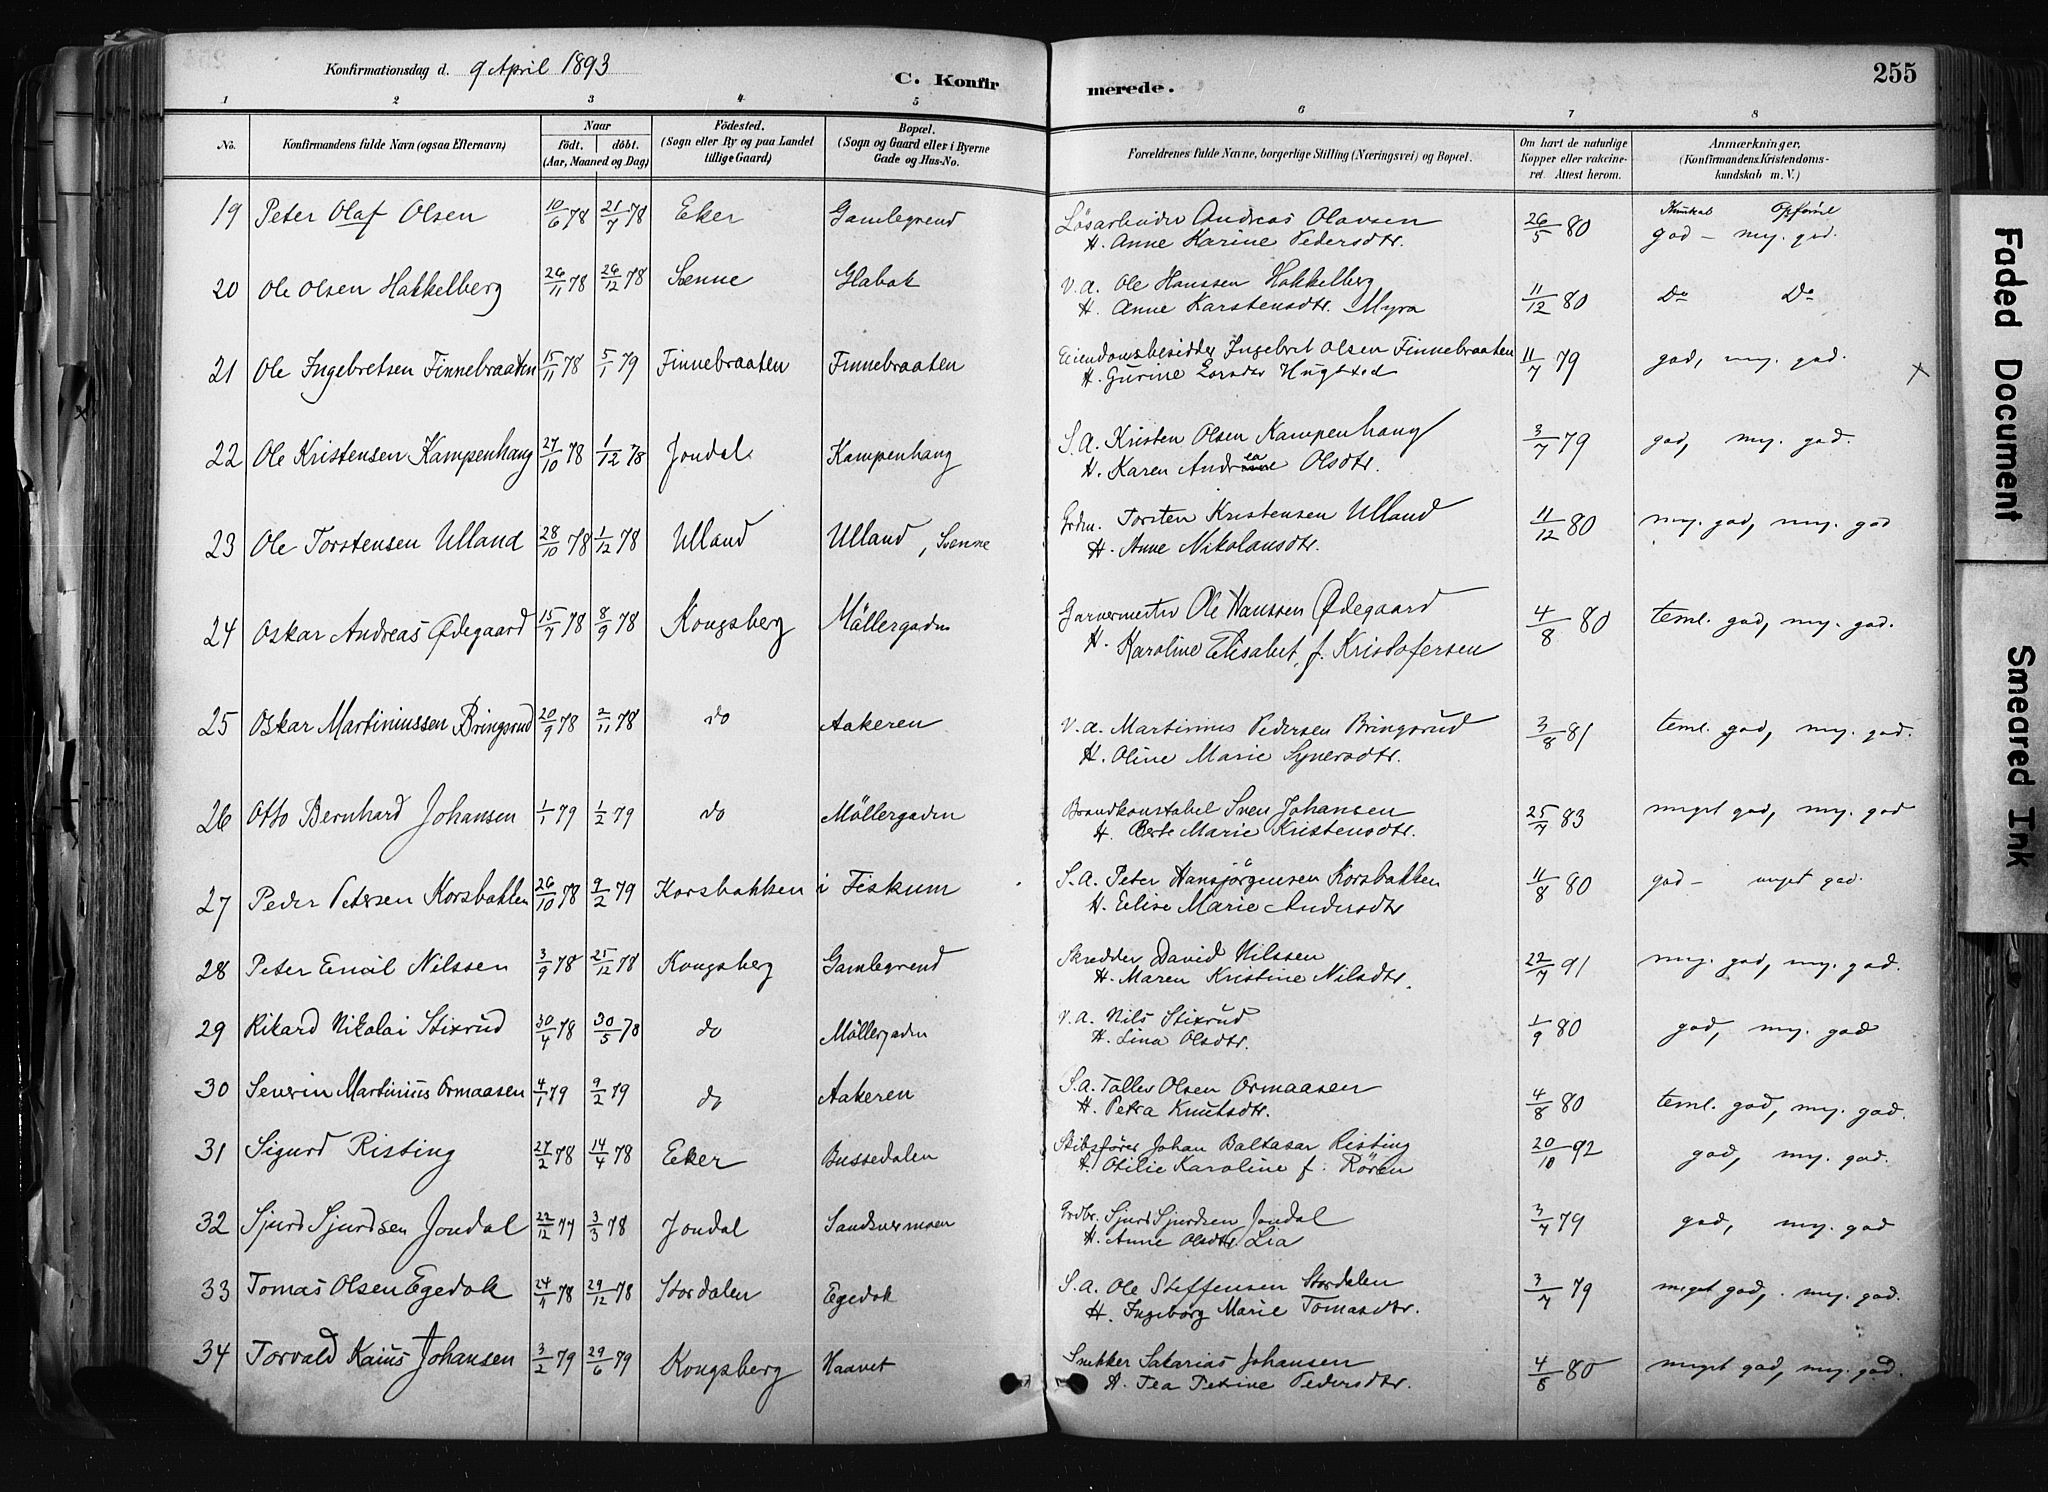 Konfirmationsdag d. 9 April 1893
C. Konfirmerede.
255
1 2 3 4 5 6 7 8
No.
Konfirmandens fulde Navn (ogsaa Efternavn)
Naar
födt. döbt.
(Aar, Maaned og Dag)
Födested.
(Sogn eller By og paa Landet
tillige Gaard)
Bopæl.
(Sogn og Gaard eller i Byerne
Gade og Hus-No.
Forældrenes fulde Navne, borgerlige Stilling (Næringsvei) og Bopæl.
Om havt de naturlige
Kopper eller vakcine-
ret. Attest herom.
Anmærkninger.
(Konfirmandens Kristendoms-
kundskab m. V.)
19 Peter Olaf Olsen 10/6 78 21/7 78 Eker Gamlegrend Lösarbeider Andreas Olavsen 26/5 80 god – my. god.
H. Anne Karine Pedersdtr.
20 Ole Olsen Hakkelberg 26/11 78 26/12 78 Svenne Glabak V.A. Ole Hanssen Hakkelberg 11/12 80 Do Do
H. Anne Karstensdtr. Myra
21 Ole Ingebretsen Finnebraaten 15/11 78 5/1 79 Finnebraaten Finnebraaten Eiendomsbesidder Ingebret Olsen Finnebraaten 11/7 79 god, my. god. x
H. Gurine Larsdtr Hugsted
22 Ole Kristensen Kampenhaug 27/10 78 1/12 78 Jondal Kampenhaug S.A. Kristen Olsen Kampenhaug 3/7 79 god, my. god.
H. Karen Andrea Olsdtr.
23 Ole Torstensen Ulland 28/10 78 1/12 78 Ulland Ulland, Svenne Grdm. Torsten Kristensen Ulland 11/12 80 my. god, my. god
H. Anne Nikolausdtr.
24 Oskar Andreas Ødegaard 15/7 78 8/9 78 Kongsberg Möllergaden Garvermester Ole Hanssen Ødegaard 4/8 80 teml. god, my. god.
H. Karoline Elisabet, f. Kristofersen
25 Oskar Martiniussen Bringsrud 20/9 78 2/11 78 do Aakeren V.A. Martinius Pedersen Bringsrud 3/8 81 teml. god, my. god.
H. Oline Marie Syversdtr.
26 Otto Bernhard Johansen 1/1 79 1/2 79 do Möllergaden Brandkonstabel Sven Johansen 25/7 83 meget god, my. god
H. Berte Marie Kristensdtr.
27 Peder Petersen Korsbakken 26/10 78 9/2 79 Korsbakken i Fiskum S.A. Peter Hansjörgensen Korsbakken 11/8 80 god – meget god.
H. Eelise Marie Andersdtr
28 Peter Emil Nilssen 3/9 78 25/12 78 Kongsberg Gamlegrend Skredder David Nilssen 22/7 91 my. god, my. god.
H. Maren Kristine Nilsdtr.
29 Rikard Nikolai Stixrud 30/4 78 30/5 78 do Möllergaden V.A. Nils Stixrud 1/9 80 god, my. god
H. Lina Olsdtr.
30 Severin Martinius Ormaasen 4/1 79 9/2 79 do Aakeren S.A. Tollev Olsen Ormaasen 4/8 80 teml. god, my. god.
H. Petra Knutsdtr.
31 Sigurd Risting 27/2 78 14/4 78 Eker Bussedalen Skibsfører Johan Baltasar Risting 20/10 92 god, my. god.
H. Otilie Karoline f. Rören
32 Sjurd Sjurdsen Jondal 22/12 77 3/3 78 Jondal Sandsvermoen Grdbr. Sjurd Sjurdsen Jondal 3/7 79 god, my. god
H. Anne Olsdtr. Lia
33 Tomas Olsen Egedok 24/11 78 29/12 78 Stordalen Egedok S.A. Ole Steffensen Stordalen 3/7 79 meget god, my. god.
H. Ingeborg Marie Tomasdtr.
34 Torvald Kaius Johansen 3/2 79 29/6 79 Kongsberg Haavet Snekker Sakarias Johansen 4/8 80 meget god, my. god.
H. Tea Petrine Pedersdtr.
Faded Document
Smeared Ink